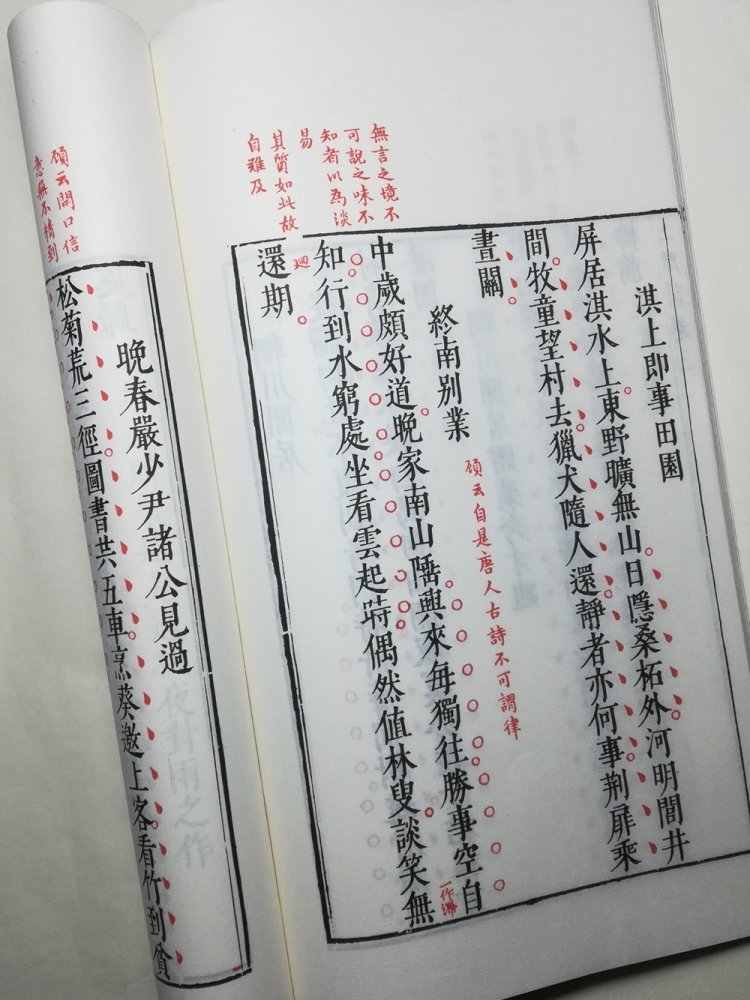 淇上即事田園
屏居淇水上東野曠無山日隱桑柘外河明閭井
間牧童望村去獵犬隨人還靜者亦何事荆扉乘
晝關
終南別業
顧云自是唐人古詩不可謂律
無言之境不
可說之味不
知者以為淡
易
其質如此故
自難及
中歲頗好道晚家南山陲興來每獨往勝事空自
一作
知行到水窮處坐看雲起時偶然值林叟談笑無
還期
廻
晚春嚴少尹諸公見過
顧云開口信
意無不精到
松菊荒三徑圖書共五車烹葵邀上客看竹到貧